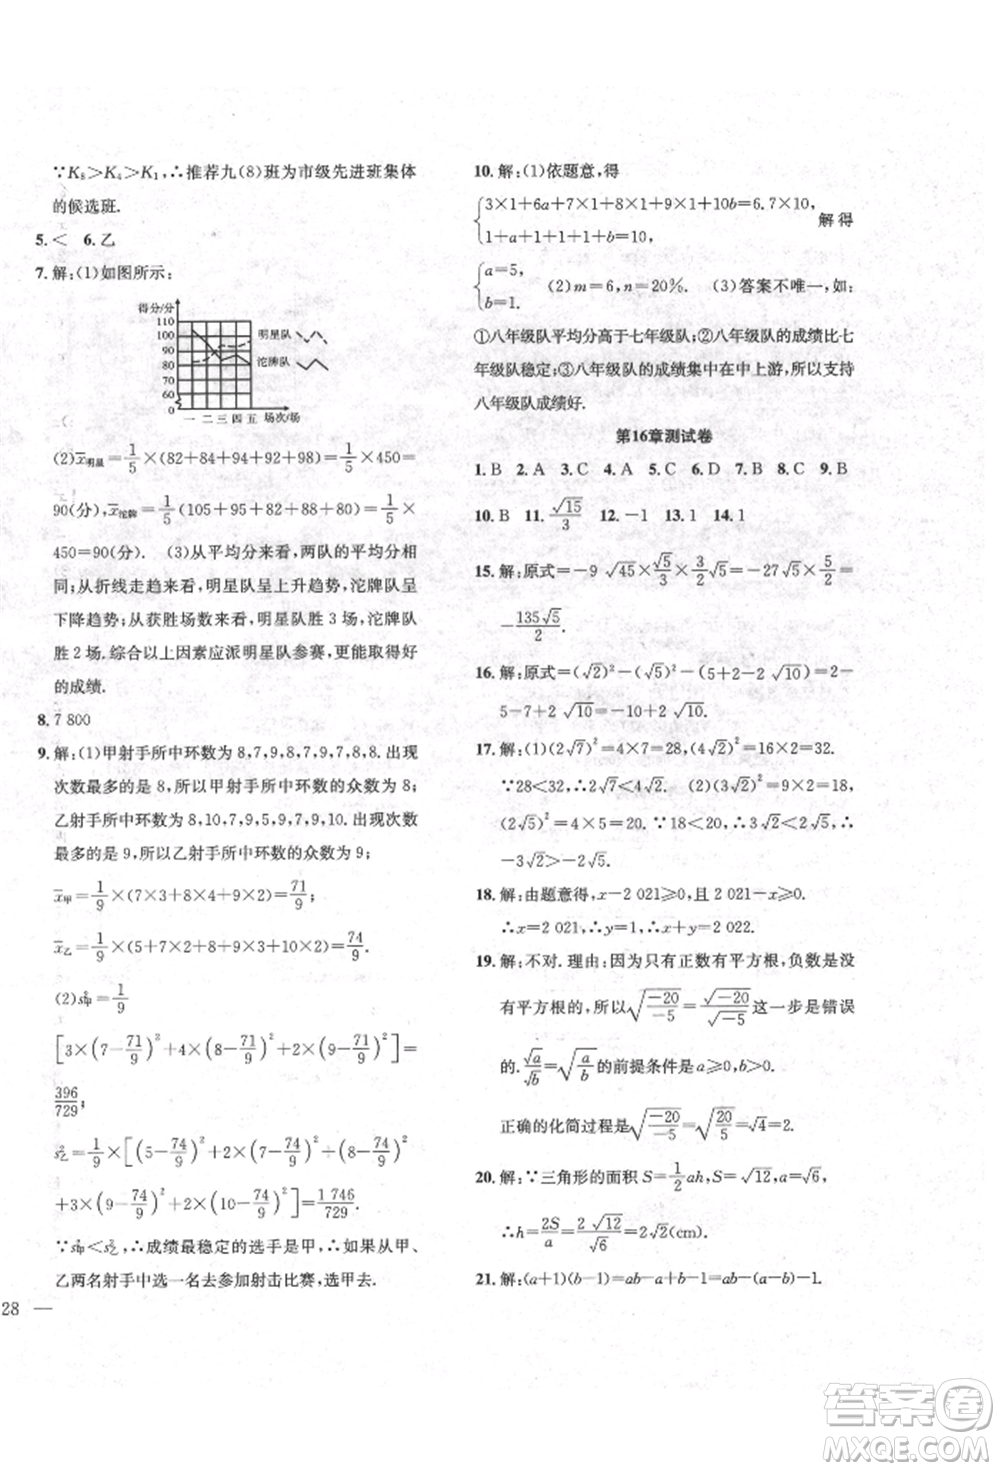 ∵K₈>K₄>K₁,∴推荐九(8)班为市级先进班集体
的候选班.
5.< 6.乙
7.解:(1)如图所示:
得分/分
110
100
90
80
70
60
0
明星队
沱牌队
一 二 三 四 五 场次/场
(2)x̄明星=1/5×(82+84+94+92+98)=1/5×450=
90(分),x̄沱牌=1/5(105+95+82+88+80)=1/5×
450=90(分). (3)从平均分来看,两队的平均分相
同;从折线走趋来看,明星队呈上升趋势,沱牌队呈
下降趋势;从获胜场数来看,明星队胜 3 场,沱牌队
胜 2 场.综合以上因素应派明星队参赛,更能取得好
的成绩.
8. 7 800
9.解:(1)甲射手所中环数为 8,7,9,8,7,9,7,8,8.出现
次数最多的是 8,所以甲射手所中环数的众数为 8;
乙射手所中环数为 8,10,7,9,5,9,7,9,10.出现次数
最多的是 9,所以乙射手所中环数的众数为 9;
x̄甲=1/9×(7×3+8×4+9×2)=71/9;
x̄乙=1/9×(5+7×2+8+9×3+10×2)=74/9.
(2)s²甲=1/9
[3×(7−71/9)²+4×(8−71/9)²+2×(9−71/9)²]=
396/729;
s²乙=1/9×[(5−74/9)²+2×(7−74/9)²+(8−74/9)²
+3×(9−74/9)²+2×(10−74/9)²]=1 746/729.
∵s²甲<s²乙,∴成绩最稳定的选手是甲,∴如果从甲、
乙两名射手中选一名去参加射击比赛,选甲去.
28 —
10.解:(1)依题意,得
{3×1+6a+7×1+8×1+9×1+10b=6.7×10,
1+a+1+1+1+b=10, 解得
{a=5,
b=1. (2)m=6,n=20%. (3)答案不唯一,如:
①八年级队平均分高于七年级队;②八年级队的成绩比七
年级队稳定;③八年级队的成绩集中在中上游,所以支持
八年级队成绩好.
第16章测试卷
1.B 2.A 3.C 4.A 5.C 6.D 7.B 8.C 9.B
10.B 11.√15/3 12.−1 13.1 14.1
15.解:原式=−9 √45×√5/3×3/2√5=−27√5×5/2=
−135√5/2.
16.解:原式=(√2)²−(√5)²+(√10)²−(√10+2)=2−
5−7+5 √10−10−2 √10=3 √10−20.
17.解:(1)(2√7)²=4×7=28,(4√2)²=16×2=32.
∵28<32,∴2√7<4√2. (2)(3√2)²=9×2=18,
(2√5)²=4×5=20.∵18<20,∴3√2<2√5,∴
−3√2>−2√5.
18.解:由题意得,x−2 021≥0,且 2 021−x≥0.
∴x=2 021,∴y=1,∴x+y=2 022.
19.解:不对.理由:因为只有正数有平方根,负数是没
有平方根的,所以√(−20/−5)=√−20/√−5这一步是错误
的.√a/√b=√(a/b)的前提条件是a≥0,b>0.
正确的化简过程是√(−20/−5)=√(20/5)=√4=2.
20.解:∵三角形的面积 S=1/2ah,S=√12,a=√6,
∴h=2S/a=2√12/√6=2√2(cm).
21.解:(a+1)(b−1)=ab−a+b−1=ab−(a−b)−1.
答案卷
MXQE.COM